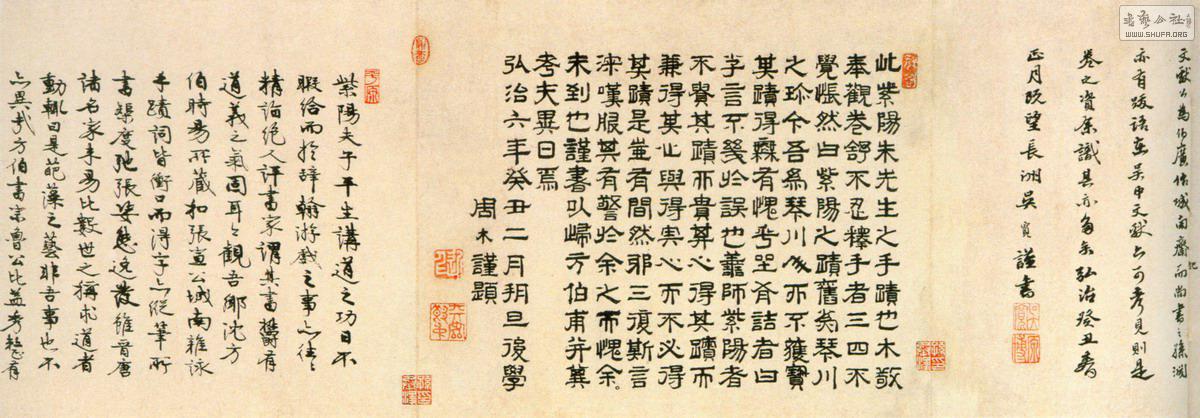 書藝公社
WWW.SHUFA.ORG
文獻公為仲廣作城南齋記而尚書之孫淵
亦有跋語在矣中文獻亦可考見則是
卷之資 識其亦多矣弘治癸丑春
正月既望長洲吳寬謹書
此紫陽朱先生之手蹟也木敬
奉觀卷舒不忍釋手者三四不
覺悵然曰紫陽之蹟舊為琴川
之珍今吾為琴川 而不獲寶
其蹟得無有愧乎坐旁詰者曰
子言不幾於誤也善師紫陽者
不寶其蹟而貴其心得其蹟而
兼得其心與得其心而不必得
其蹟是豈有間然邪三復斯言
深嘆服其有警於余之而愧余
未到也謹書以歸方伯甫并冀
考夫異日焉
弘治六年癸丑二月朔旦後學
周木謹題
紫陽夫子平生講道之功日不
暇給而於辭翰游戲之事亦往々
精詣絕人評書家謂其書鬱有
道義之氣固耳々觀吾鄉沈方
伯時易所藏和張宣公城南雜詠
手蹟詞皆衝口而得字亦從筆所
書榘度弛張姿態逸發雖晉唐
諸名家未易比數世之稱求道者
動輒曰是葩藻之藝非吾事也不
亦異哉方伯書宗魯公比益秀勁有